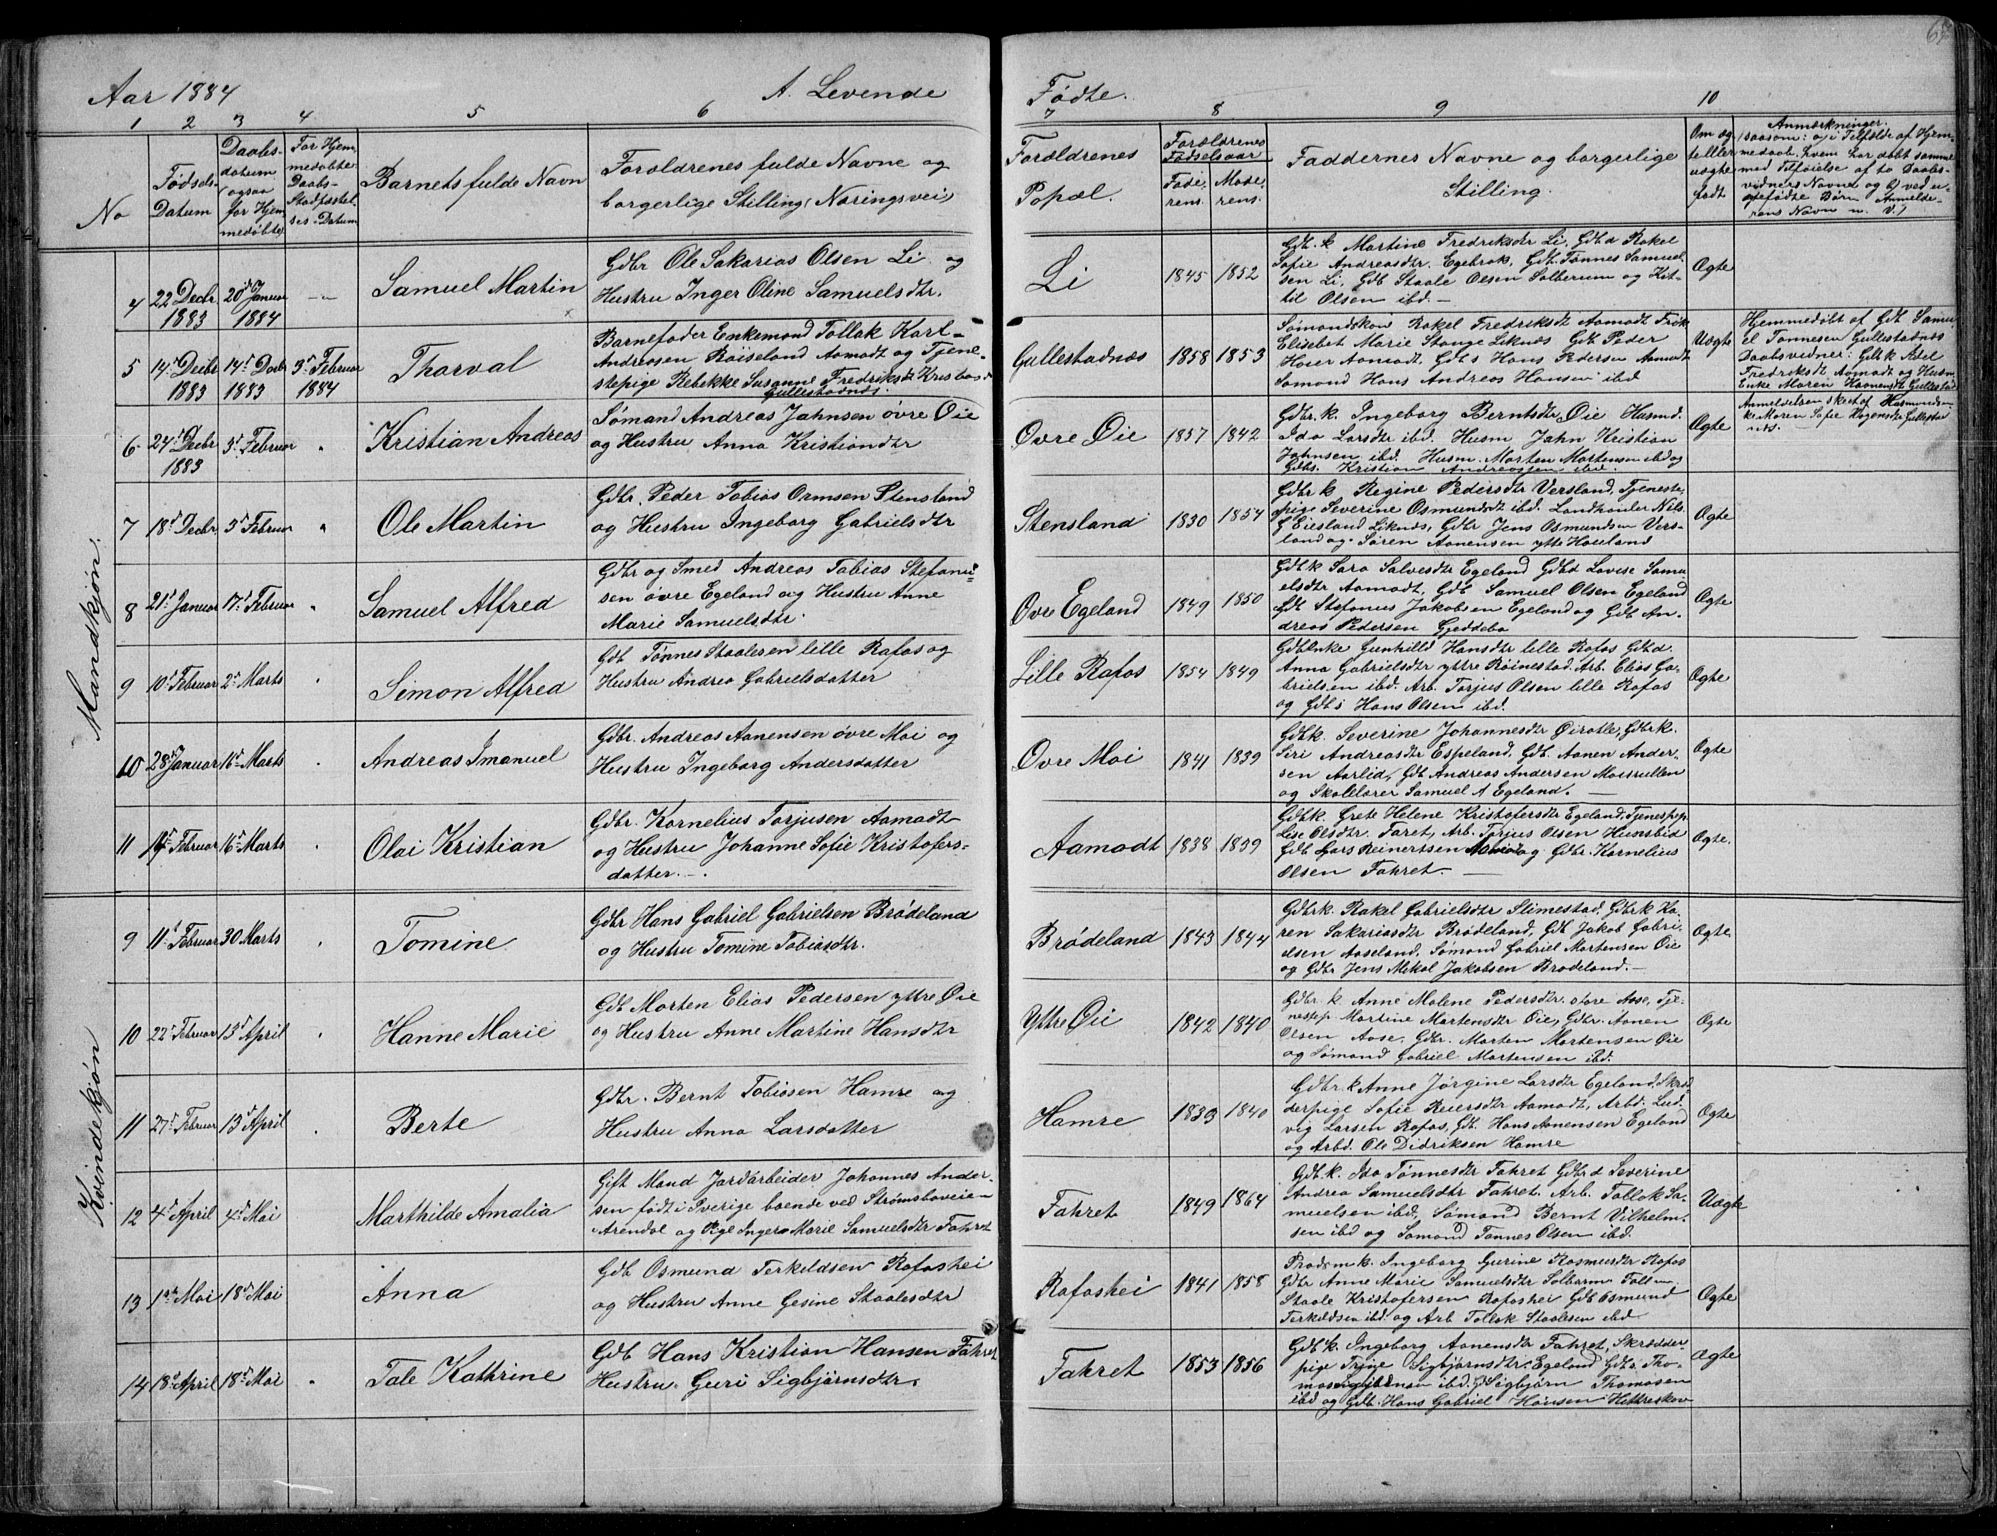 Aar 1884
A. Levende
Fødte.
1 2 3 4 5 6 7 8 9 10
No
Fødsels-
Datum
Daabs-
datum
(ogsaa
for Hjem-
medøbte)
For Hjem-
medøbte
Daabs-
Stadfæstel-
ses-Datum
Barnets fulde Navn
Forældrenes fulde Navne og
borgerlige Stilling (Næringsvei)
Forældrenes
Popæl.
Forældrenes
Fødselsaar
Fade-
rens.
Mode-
rens.
Faddernes Navne og borgerlige
Stilling.
Om æg-
te eller
uægte
født
Anmærkninger.
(saasom: a) i Tilfælde af Hjem-
medaab, hvem har døbt samme
med Tilføielse af to Daabs-
vidners Navne og b) ved u-
ægefødte Børn Anmelde-
rens Navn m. v.)
Mandkjøn.
4
22 Decbr
1883
20de Januar
1884
Samuel Martin
Gdbr Ole Sakarias Olsen Li og
Hustru Inger Oline Samuelsdtr.
Li
1845
1852
Gdb.k Martine Fredriksdtr Li, Gdb.d Rakel
Sofie Andreasdtr. Egebrok, Gdb. Tønnes Samuel-
sen Li, Gdb Staale Olsen Solberum og Kit-
til Olsen ibd.—
Ægte
5
14de Decbr
1883
14de Decbr
1883
3de Februar
1884
Thorval
Barnefader Enkemand Tollak Karl
Andreasen Røiseland Aamodt og Tjene-
stepige Rebekke Susanne Fredriksdtr Kristians
Gullestadnæs.
Gullestadnæs
1858
1853
Sømandskon Rakel Fredriksdt Aamodt Frøk
Elisebet Marie Stange Liknes Gdb Peder
Hoier Aamodt, Gdbs Hans Pedersen Aamodt
Sømand Hans Andreas Hansen ibd
Uægte
Hjemmedøbt af Gdb. Samu-
el Tønnesen Gullestadnæs
Daabsvidner: Gdb.k Abel
Fredriksdt. Aamodt og Husm.
Enke Maren Haavensdt Gullestad
Anmeldelsen skeet af Husmands-
k. Maren Sofie Gullestad
næs.
6
24de Decbr
1883
3de Februar
Kristian Andreas
Sømand Andreas Jahnsen øvre Øie
og Hustru Anna Kristiandtr
Øvre Øie
1857
1842
Gdbr.k. Ingeborg Berntsdtr Øie Husmd.
Ida Larsdtr ibd. Husm Jahn Kristian
Jahnsen ibd. Husm. Morten Mortensen ibd og
Gdbs. Kristian Andreassen ibd.
Ægte
7
18de Decbr
3de Februar
Ole Martin
Gdbr Peder Tobias Ormsen Stensland
og Hustru Ingeborg Gabrielsdtr
Stensland
1830
1854
Gdbr k Regine Pedersdtr Versland, Tjeneste-
pige Severine Osmundsdt ibd. Landhandler Nils
G Eiesland Liknes, Gdbr Jens Osmundsen Vers-
land og Søren Aanensen ytre Haaland
Ægte
8
21de Januar
17de Februar
Samuel Alfred
Gdbr og Smed Andreas Tobias Stefanu-
sen øvre Egeland og Hustru Anne
Marie Samuelsdtr.
Øvre Egeland
1849
1850
Gdb.k Sara Salvesdtr Egeland Gdb.d Lovise Samu-
elsdtr Aamodt, Gdb Samuel Olsen Egeland
Gdb Stefanus Jakobsen Egeland og Gdb An-
dreas Pedersen Gjeddebo
Ægte
9
10de Februar
2den Marts
Simon Alfred
Gdb. Tønnes Staalesen lille Rafos og
Hustru Andrea Gabrielsdatter
Lille Rafos
1854
1849
Gdb Enke Gunhild Hansdtr lille Rafos Gdb.d
Anna Gabrielsdtr yttre Røinestad. Arb. Elias Ga-
brielsen ibd. Arb. Torjus Olsen lille Rafos
og Gdb.s Hans Olsen ibd.
Ægte
10
28de Januar
16de Marts
Andreas Imanuel
Gdbr. Andreas Aanensen øvre Moi og
Hustru Ingeborg Andersdatter
Øvre Moi
1841
1839
Gdb.k. Severine Johannesdtr Øiratle, Gdbr.k.
Siri Andreasdtr Espeland, Gdb. Aanen Ander-
sen Aarlid, Gdb Andreas Andersen Moisrullen
og Skolelærer Samuel A Egeland. —
Ægte
11
14de Februar
16de Marts
Olai Kristian
Gdbr. Kornelius Torjusen Aamodt
og Hustru Johanne Sofie Kristofers-
datter.—.
Aamodt
1838
1839
Gdb.k. Grete Helene Kristofersdtr Egeland, Tjenestepig
Lise Olsdtr. Faret, Arb. Torjus Olsen Hunsbid
Gdb Lars Reinertsen Aamodt og Gdbr. Kornelius
Olsen Fahret. —
Ægte.
Kvindekjøn
9
11te Februar
30 Marts
Tomine
Gdbr Hans Gabriel Gabrielsen Brødeland
og Hustru Tomine Tobiasdtr.
Brødeland
1843
1844
Gdbr.k. Rakel Gabrielsdtr Slimestad, Gdbr.k Ka-
ren Sakariasdtr Brødeland, Gdb Jakob Gabri-
elsen Aaseland, Sømand Gabriel Mortensen Øie
og Gdbr Jens Mikal Jakobsen Brødeland.—
Ægte
10
22de Februar
13de April
Hanne Marie
Gdb Morten Elias Pedersen yttre Øie
og Hustru Anne Martine Hansdtr
Yttre Øie
1842
1840
Gdbr k. Anne Malene Pedersdtr. store Aase, Tje-
nestep. Martine Mortensdtr Øie, Gdbr. Aanen
Olsen Aase, Gdbr. Morten Mortensen Øie
og Sømand Gabriel Mortensen ibd.
Ægte
11
27de Februar
13de April
Berte
Gdbr. Bernt Tobiasen Hamre og
Hustru Anna Larsdatter
Hamre
1839
1840
Gdbr.k Anne Jørgine Larsdtr Egeland, Skræd-
derpige Sofie Reiersdtr Aamodt, Arbd. Lud-
vig Larsen Rafos, Gdb. Hans Aanensen Egeland
og Arbd. Ole Didriksen Hamre
Ægte
12
4de April
4de Mai
Marthilde Amalia
Gift Mand Jordarbeider Johannes Ander-
sen født i Sverige boende ved Strømsboveien
Arendal og Pige Ingera Marie Samuelsdtr Fahret
Fahret
1849
1864
Gdb.k. Ida Tønnesdtr Fahret Gdbr d Severine
Andrea Samuelsdtr Fahret, Arb. Tollak Sa-
muelsen ibd, Sømand Bernt Vilhelm-
sen ibd og Sømand Tønnes Olsen ibd.
Uægte
13
1ste Mai
18de Mai
Anna
Gdb Osmund Terkeldsen Rafoshei
og Hustru Anne Gesine Staalesdtr
Rafoshei
1841
1858
Pladsm.k. Ingeborg Gurine Rasmusdtr Rafos
Gdbr Anne Marie Samuelsdtr Solbarm
Staale Kristofersen Rafoshei Gdb Osmund
Terkildsen ibd. og Arb Tollak Staalesen ibd
Ægte
14
18de April
18de Mai
Tale Kathrine
Gdb Hans Kristian Hansen Fahret
Hustru. Guri Sigbjørnsdtr.
Fahret
1853
1856
Gdb.k. Ingeborg Aanensdtr Fahret, Skrædder-
pige Trine Sigbjørnsdtr. Egeland Gdb.s Tho-
mas ibd. Sigbjørn Thomasen
ibd og Gdb. Hans Gabriel Hansen Hetteskov
Ægte